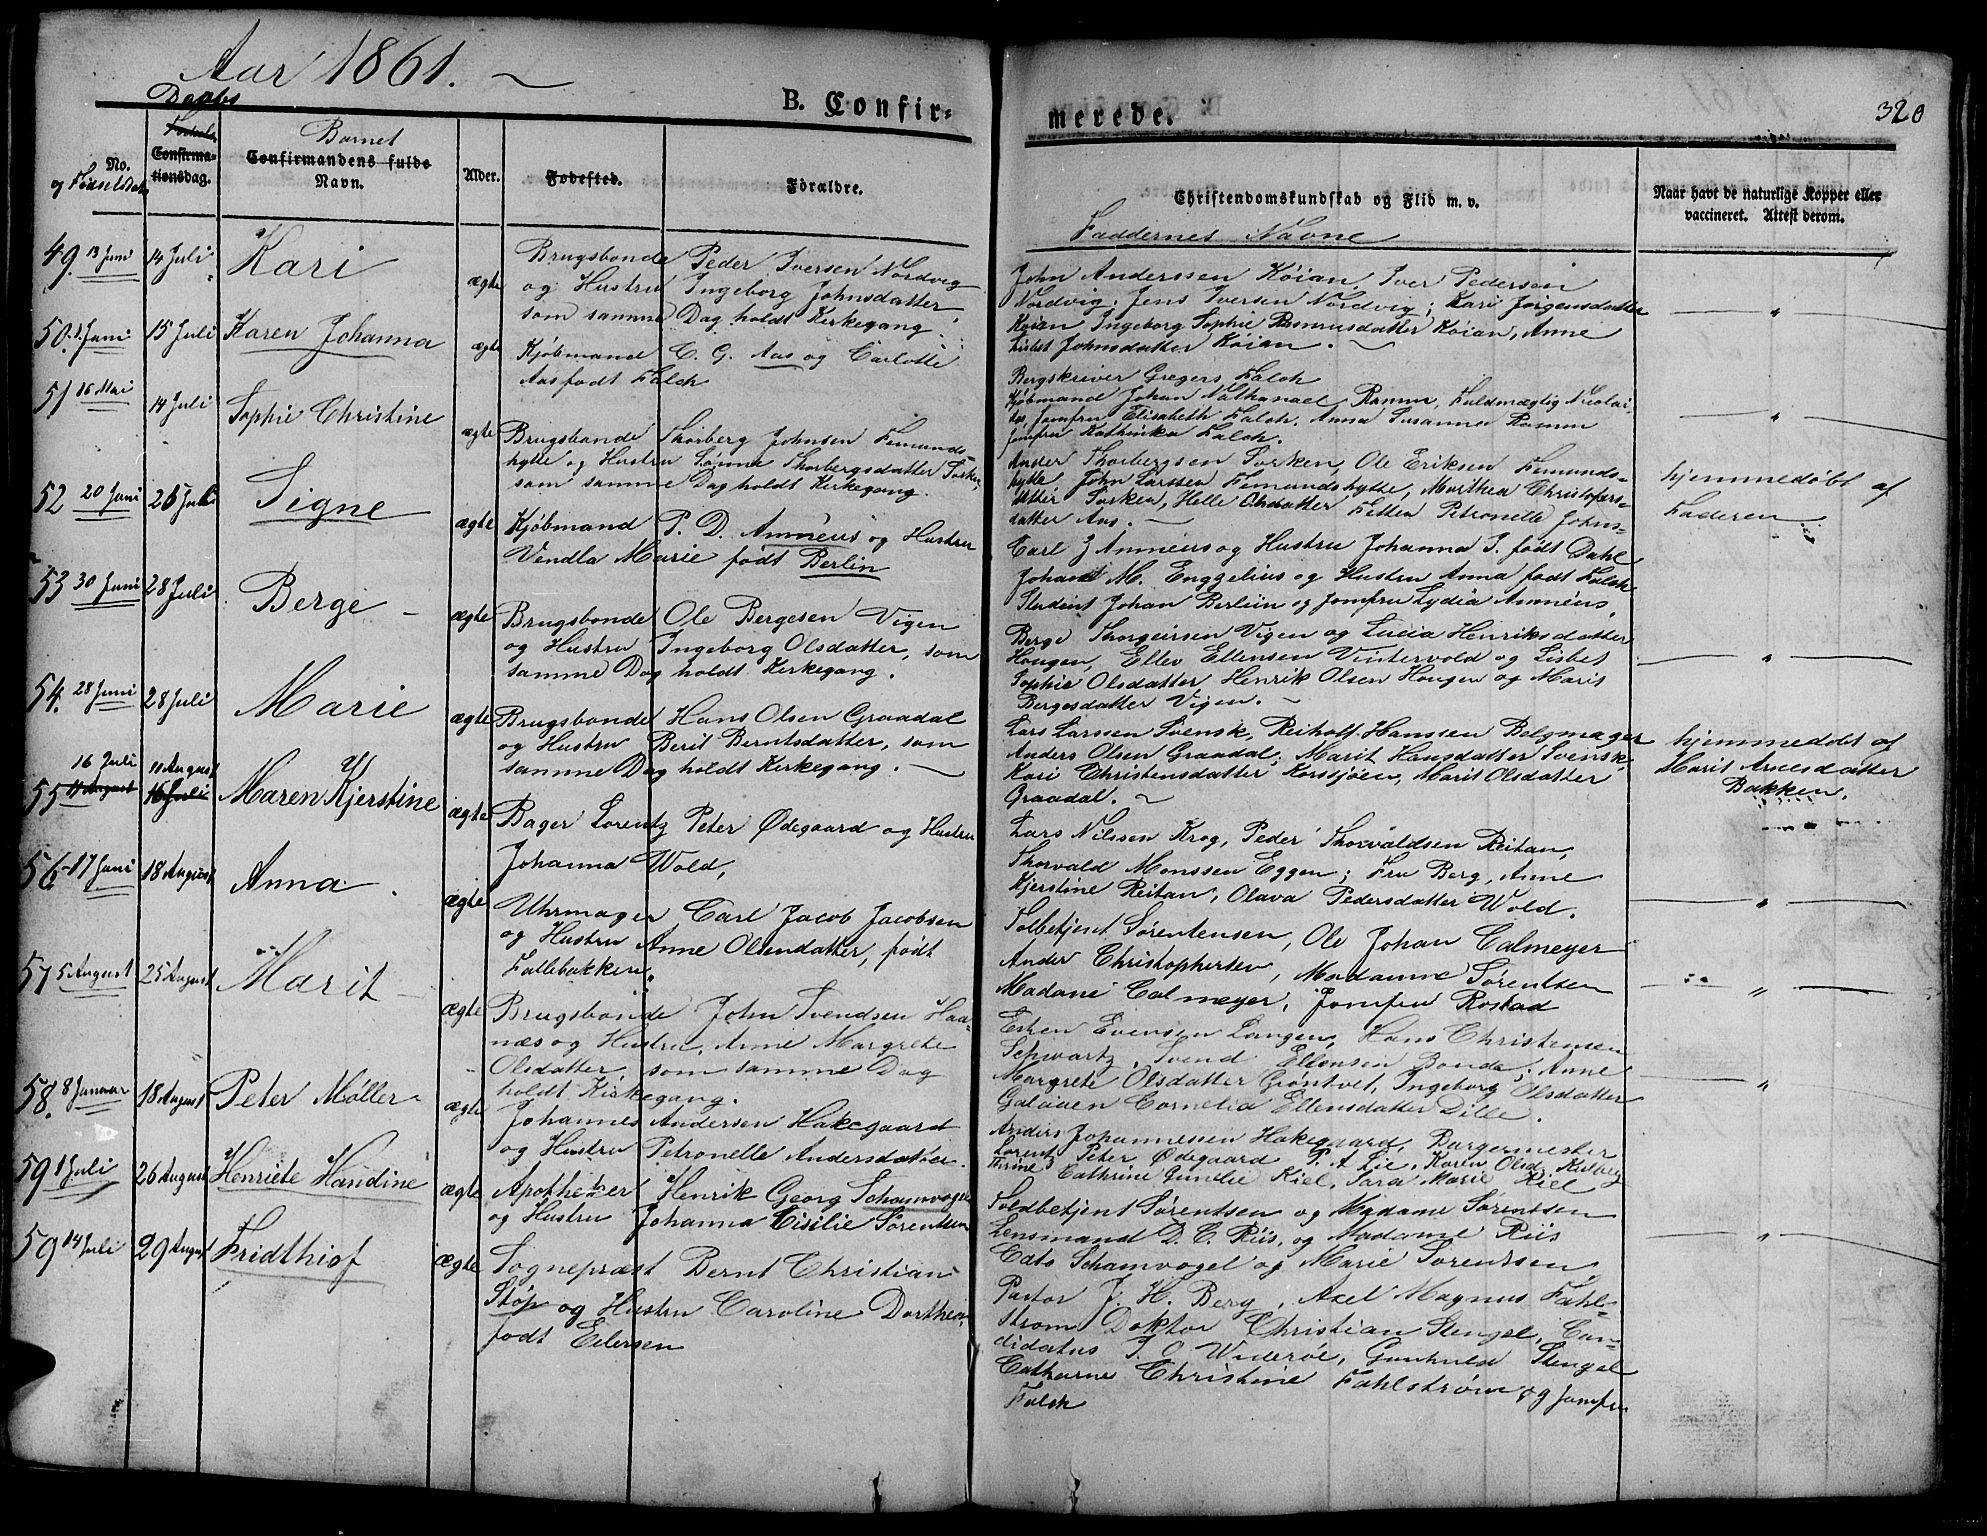 Aar 1861.
B. Confir-
Daabs
Barnet
No. og Fødselsdato
Confirmationsdag.
Confirmandens fulde Navn.
Alder.
Fødested.
Forældre.
49. 13 Juni
14 Juli
Kari
ægte
Brugsbonde Peder Iversen Nordvig
og Hustru Ingeborg Johnsdatter,
som samme Dag holdt Kirkegang.
50. 1 Juni
15 Juli
Karen Johanna
ægte
Kjøbmand C. G. Aas og Carlotte
Aas født Falch
51 16 Mai
14 Juli
Sophie Christine
ægte
Brugsbonde Thorberg Johnsen Femunds-
hytte og Hustru Sønne Thorbergsdatter Sorken,
som samme Dag holdt Kirkegang.
52 20 Juni
26 Juli
Signe
ægte
Kjøbmand P. D. Amnéus og Hustru
Vendla Marie født Berlin
53 30 Juni
28 Juli
Berge
ægte
Brugsbonde Ole Bergesen Vigen
og Hustru Ingeborg Olsdatter, som
samme Dag holdt Kirkegang.
54. 28 Juni
28 Juli
Marie
ægte
Brugsbonde Hans Olsen Graadal
og Hustru Berit Berntsdatter, som
samme Dag holdt Kirkegang.
16 Juli
11 August
55 11 August
16 Juli
Maren Kjerstine
ægte
Bager Lorentz Peter Ødegaard og Hustru
Johanna Wold,
56 17 Juni
18 August
Anna
ægte
Uhrmager Carl Jacob Jacobsen
og Hustru Anne Olsendatter, født
Fallebakken.
57 5 August
25 August
Marit
ægte
Brugsbonde John Svendsen Haa-
næs og Hustru, Anne Margrete
Olsdatter som samme Dag
holdt Kirkegang.
58. 8 Januar
18 August
Peter Møller
ægte
Johannes Andersen Hakegaard
og Hustru Petronelle Andersdatter
59 1 Juli
26 August
Henriete Handine
ægte
Apotheker Henrik Georg Schamvogel
og Hustru Johanna Cisilie Sørentsen
59 14 Juli
29 August
Fridthiof
ægte
Sognepræst Bernt Christian
Støp og Hustru Caroline Dorthea,
født Eilersen
merede.
320
Christendomskundskab og Flid m. v.
Faddernes Navne
Naar havt de naturlige Kopper eller
vaccineret. Attest derom.
John Anderssen Køian, Iver Pedersen
Nordvig, Jens Iversen Nordvig; Kari Jørgensdatter
Køian Ingeborg Sophie Rasmusdatter Køian, Anne
Lisbet Johnsdatter Køian.
Bergskriver Gregers Falch
Kjøbmand Johan Nathanael Ramm, Fuldmægtig Nicolai
Jomfru Elisabeth Falch, Anna Susanna Ramm
Jomfru Kathinka Falch.
Ander Thorbergsen Sorken, Ole Eriksen Femunds-
hytte, John Larssen Femundshytte, Marthea Christofers-
datter Sorken, Helle Olsdatter Petronelle Johns-
datter Aas.
hjemmedøbt af
Faderen
Carl J Amnéus og Hustru Johanna J. født Dahl
Johan M. Enggelius og Hustru Anna født Falch
Student Johan Berliin og Jomfru Lydia Amnéus,
Berge Thorgeirsen Vigen og Lucia Henriksdatter
Hougen, Ellev Ellensen Vintervold og Lisbet
Sophie Olsdatter, Henrik Olsen Hougen og Marit
Bergesdatter Vigen.
Lars Larssen Svensk, Reiholt Hanssen Belgmager
Anders Olsen Graadal, Marit Hansdatter Svensk,
Kari Christensdatter Korssjøen, Marit Olsdatter
Graadal.
hjemmedøbt af
Marit Arnesdatter
Bakken.
Lars Nilssen Krog, Peder Thorvaldsen Reitan,
Thorvald Monssen Eggen; Fru Berg, Anne
Kjerstine Reitan, Olava Pedersdatter Wold.
Tolbetjent Sørentensen, Ole Johan Calmeyer
Ander Christophersen, Madamme Sørentsen
Madame Calmeyer, Jomfru Rostad
Esten Evensen Langen, Hans Christensen
Schwartz, Svend Ellensen Bonde; Anne
Margrete Olsdatter Grøntvet, Ingeborg Olsdatter
Galaaen Cornelia Ellensdatter Dille.
Anders Johannessen Hakegaard, Borgermester
Lorentz Peter Ødegaard P. A Lie, Karen Olsd. Kulberg
Cathrine Gunelie Kiel, Sara Marie Kiel
Toldbetjent Sørentsen og Madame Sørentsen
Lensmand D. C. Riis, og Madame Riis
Cato Schamvogel og Marie Sørentsen,
Pastor J. H. Berg, Axel Magnus Fahl-
strøm Doktor Christian Stengel, Can-
didatus J. O. Widerøe, Gunhild Stengel
Catharine Christine Fahlstrøm og Jomfru
Falch